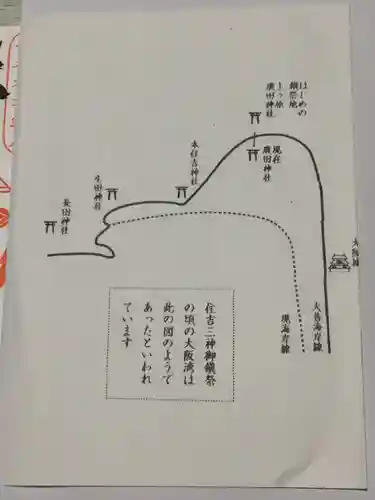 はじめの
鎮祭地
より旅
廣田神社
現在
廣田神社
本住吉神社
生田神社
長田神社
大阪城
大昔海岸線
現海岸線
住吉三神御鎮祭
の頃の大阪湾は
此の図のようで
あったといわれ
ています